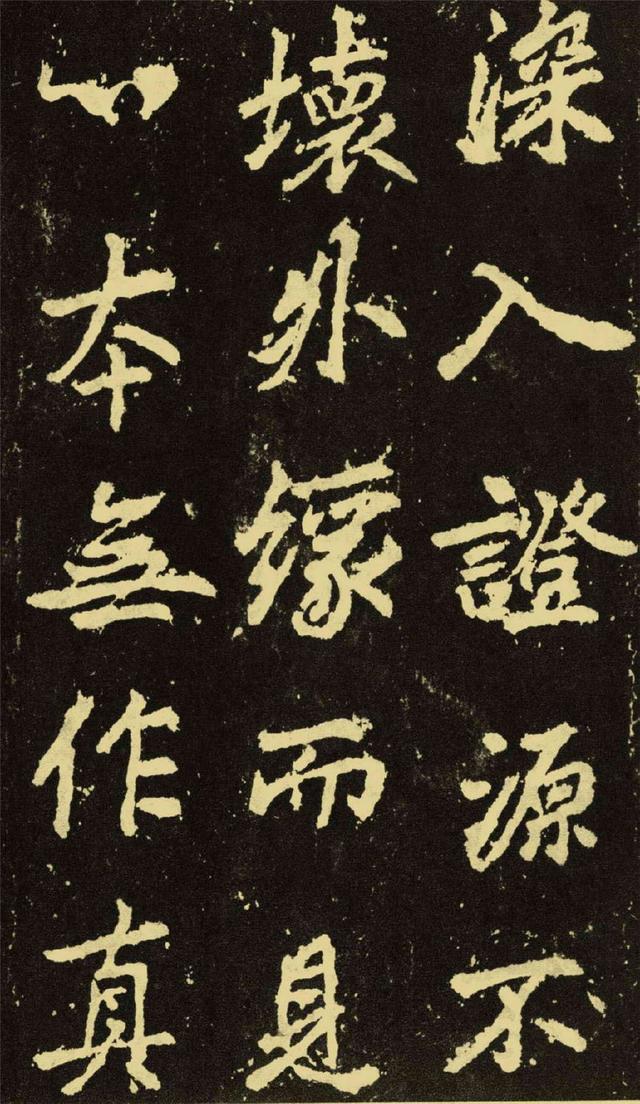 深入證源不
壞外缘而見
心本無作真